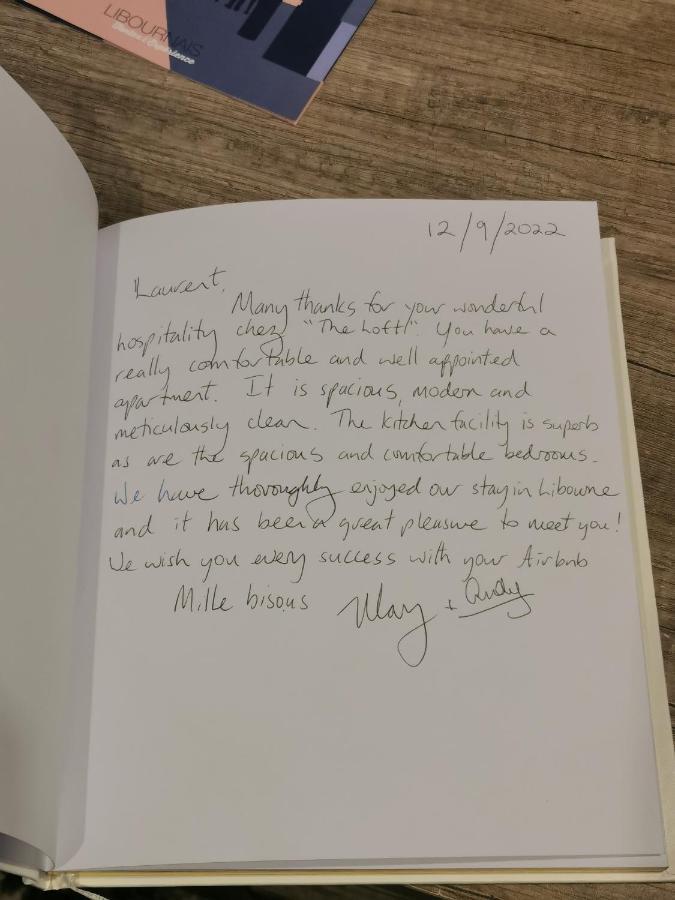 LIBOURNAIS
12/9/2022
Laurent,
Many thanks for your wonderful
hospitality chez "The Loft". You have a
really comfortable and well appointed
apartment. It is spacious, modern and
meticulously clean. The kitchen facility is superb
as are the spacious and comfortable bedrooms.
We have thoroughly enjoyed our stay in Libourne
and it has been a great pleasure to meet you!
We wish you every success with your Airbnb
Mille bisous May + Andy